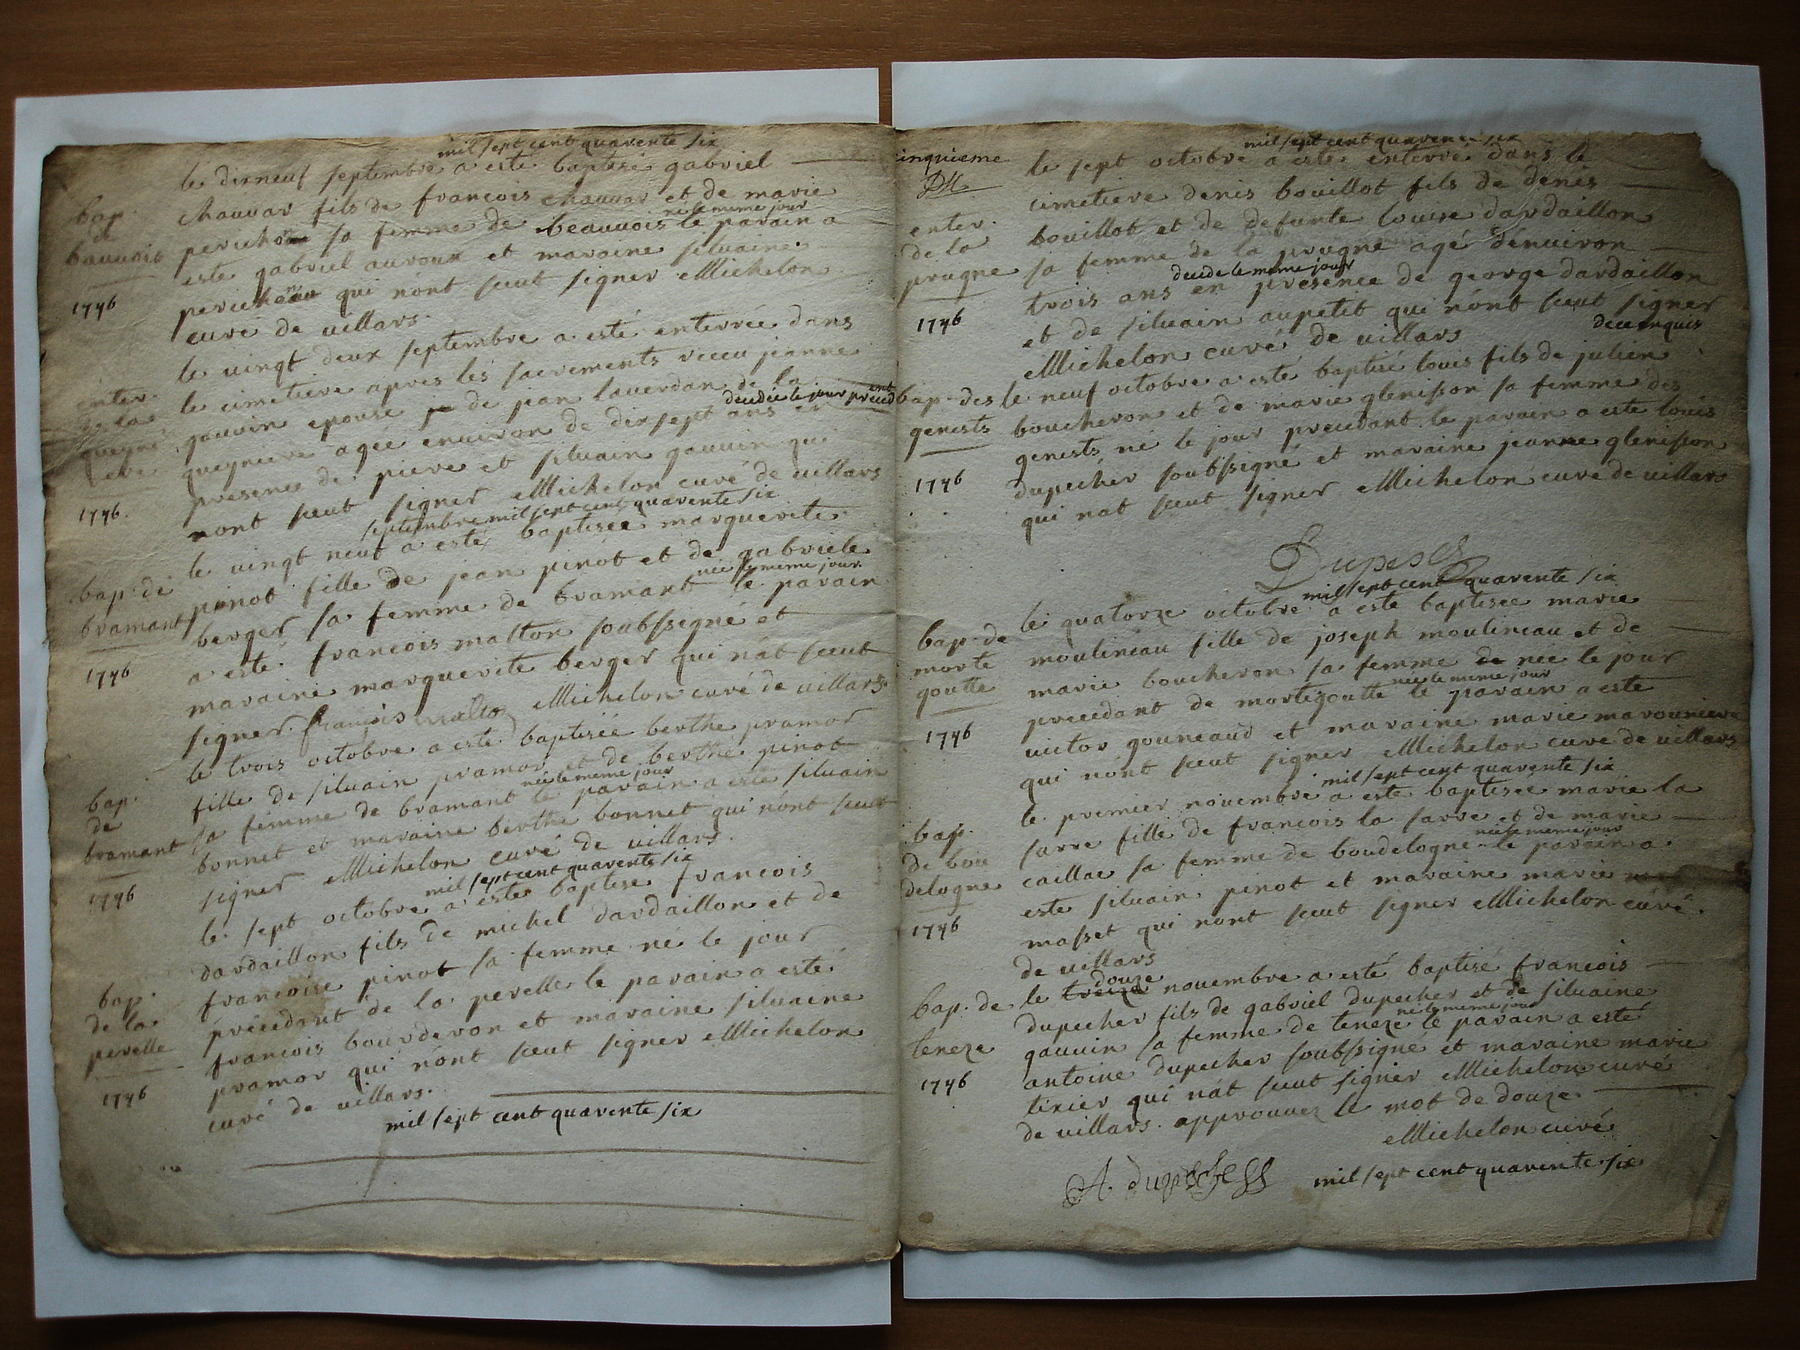 mil sept cent quarente six
le dixneuf septembre a esté baptisé gabriel
bap. chauvar fils de francois chauvar et de marie
de
née le meme jour
bauvois perichon sa femme de beauvois le parain a
este gabriel auroux et maraine silvaine
1746 perichon qui nont sceut signer Michelon
curé de villars.
le vingt deux septembre a esté enterrée dans
enter. le cimetiere apres les sacrements receu jeanne
de la gauvin epouse de jean laverdan de la
decedée le jour precedent
queyne queynere agee environ de dixsept ans en
ere presence de piere et silvain gauvin qui
1746. nont sceut signer Michelon curé de villars
septembre mil sept cent quarente six
le vingt neuf a esté baptisee marguerite
bap. de pinot fille de jean pinot et de gabriele
née le meme jour
bramant berger sa femme de bramant le parain
a esté francois malton soubssigné et
1746 maraine marguerite berger qui nat sceut
signer. françois malto Michelon curé de villars
le trois octobre a esté baptisée berthe pramor
bap. fille de silvain pramor et de berthe pinot
née le meme jour
de sa femme de bramant le parain a esté silvain
bramant bonnet et maraine berthe bonnet qui nont sceut
1746 signer Michelon curé de villars.
mil sept cent quarente six
le sept octobre a este baptise francois
dardaillon fils de michel dardaillon et de
francoise pinot sa femme né le jour
bap. précedant de la perelle le parain a esté
de la francois bourderon et maraine silvaine
perelle pramor qui nont sceut signer Michelon
1746 curé de villars.
mil sept cent quarente six
cinquieme
mil sept cent quarente six
le sept octobre a esté enterré dans le
cimetiere denis bouillot fils de denis
enter. bouillot et de defunte louise dardaillon
de la sa femme de la prugne agé dénviron
decede le meme jour
prugne trois ans en presence de george dardaillon
1746 et de silvain aupetit qui nónt sceut signer
Michelon curé de villars
bap. des le neuf octobre a esté baptisé louis fils de julien
genests boucheron et de marie glenisson sa femme des
genests né le jour precedant le parain a este louis
1746 dupecher soubssigné et maraine jeanne glenisson
qui nat sceut signer Michelon curé de villars
mil sept cent quarente six
le quatorze octobre a este baptisee marie
bap. de moulineau fille de joseph moulineau et de
morte marie boucheron sa femme de nee le jour
née le meme jour
goutte precedant de mortegoutte le parain a este
1746 victor gouneaud et maraine marie marouniere
qui nónt sceut signer Michelon curé de villars
mil sept cent quarente six
le premier novembre a este baptisee marie la
bap. sarre fille de francois la sarre et de marie
née le meme jour
de bou caillae sa femme de boudelogne le parain a
delogne este silvain pinot et maraine marie
1746 masset qui nont sceut signer Michelon curé
de villars
douze
bap. de le treize novembre a esté baptisé francois
dupecher fils de gabriel dupecher et de silvaine
né le meme jour
teneze gauvin sa femme de teneze le parain a esté
antoine dupecher soubssigné et maraine marie
1746 tixier qui nát sceut signer Michelon curé
de villars. approuvez le mot de douze.
Michelon curé
mil sept cent quarente six